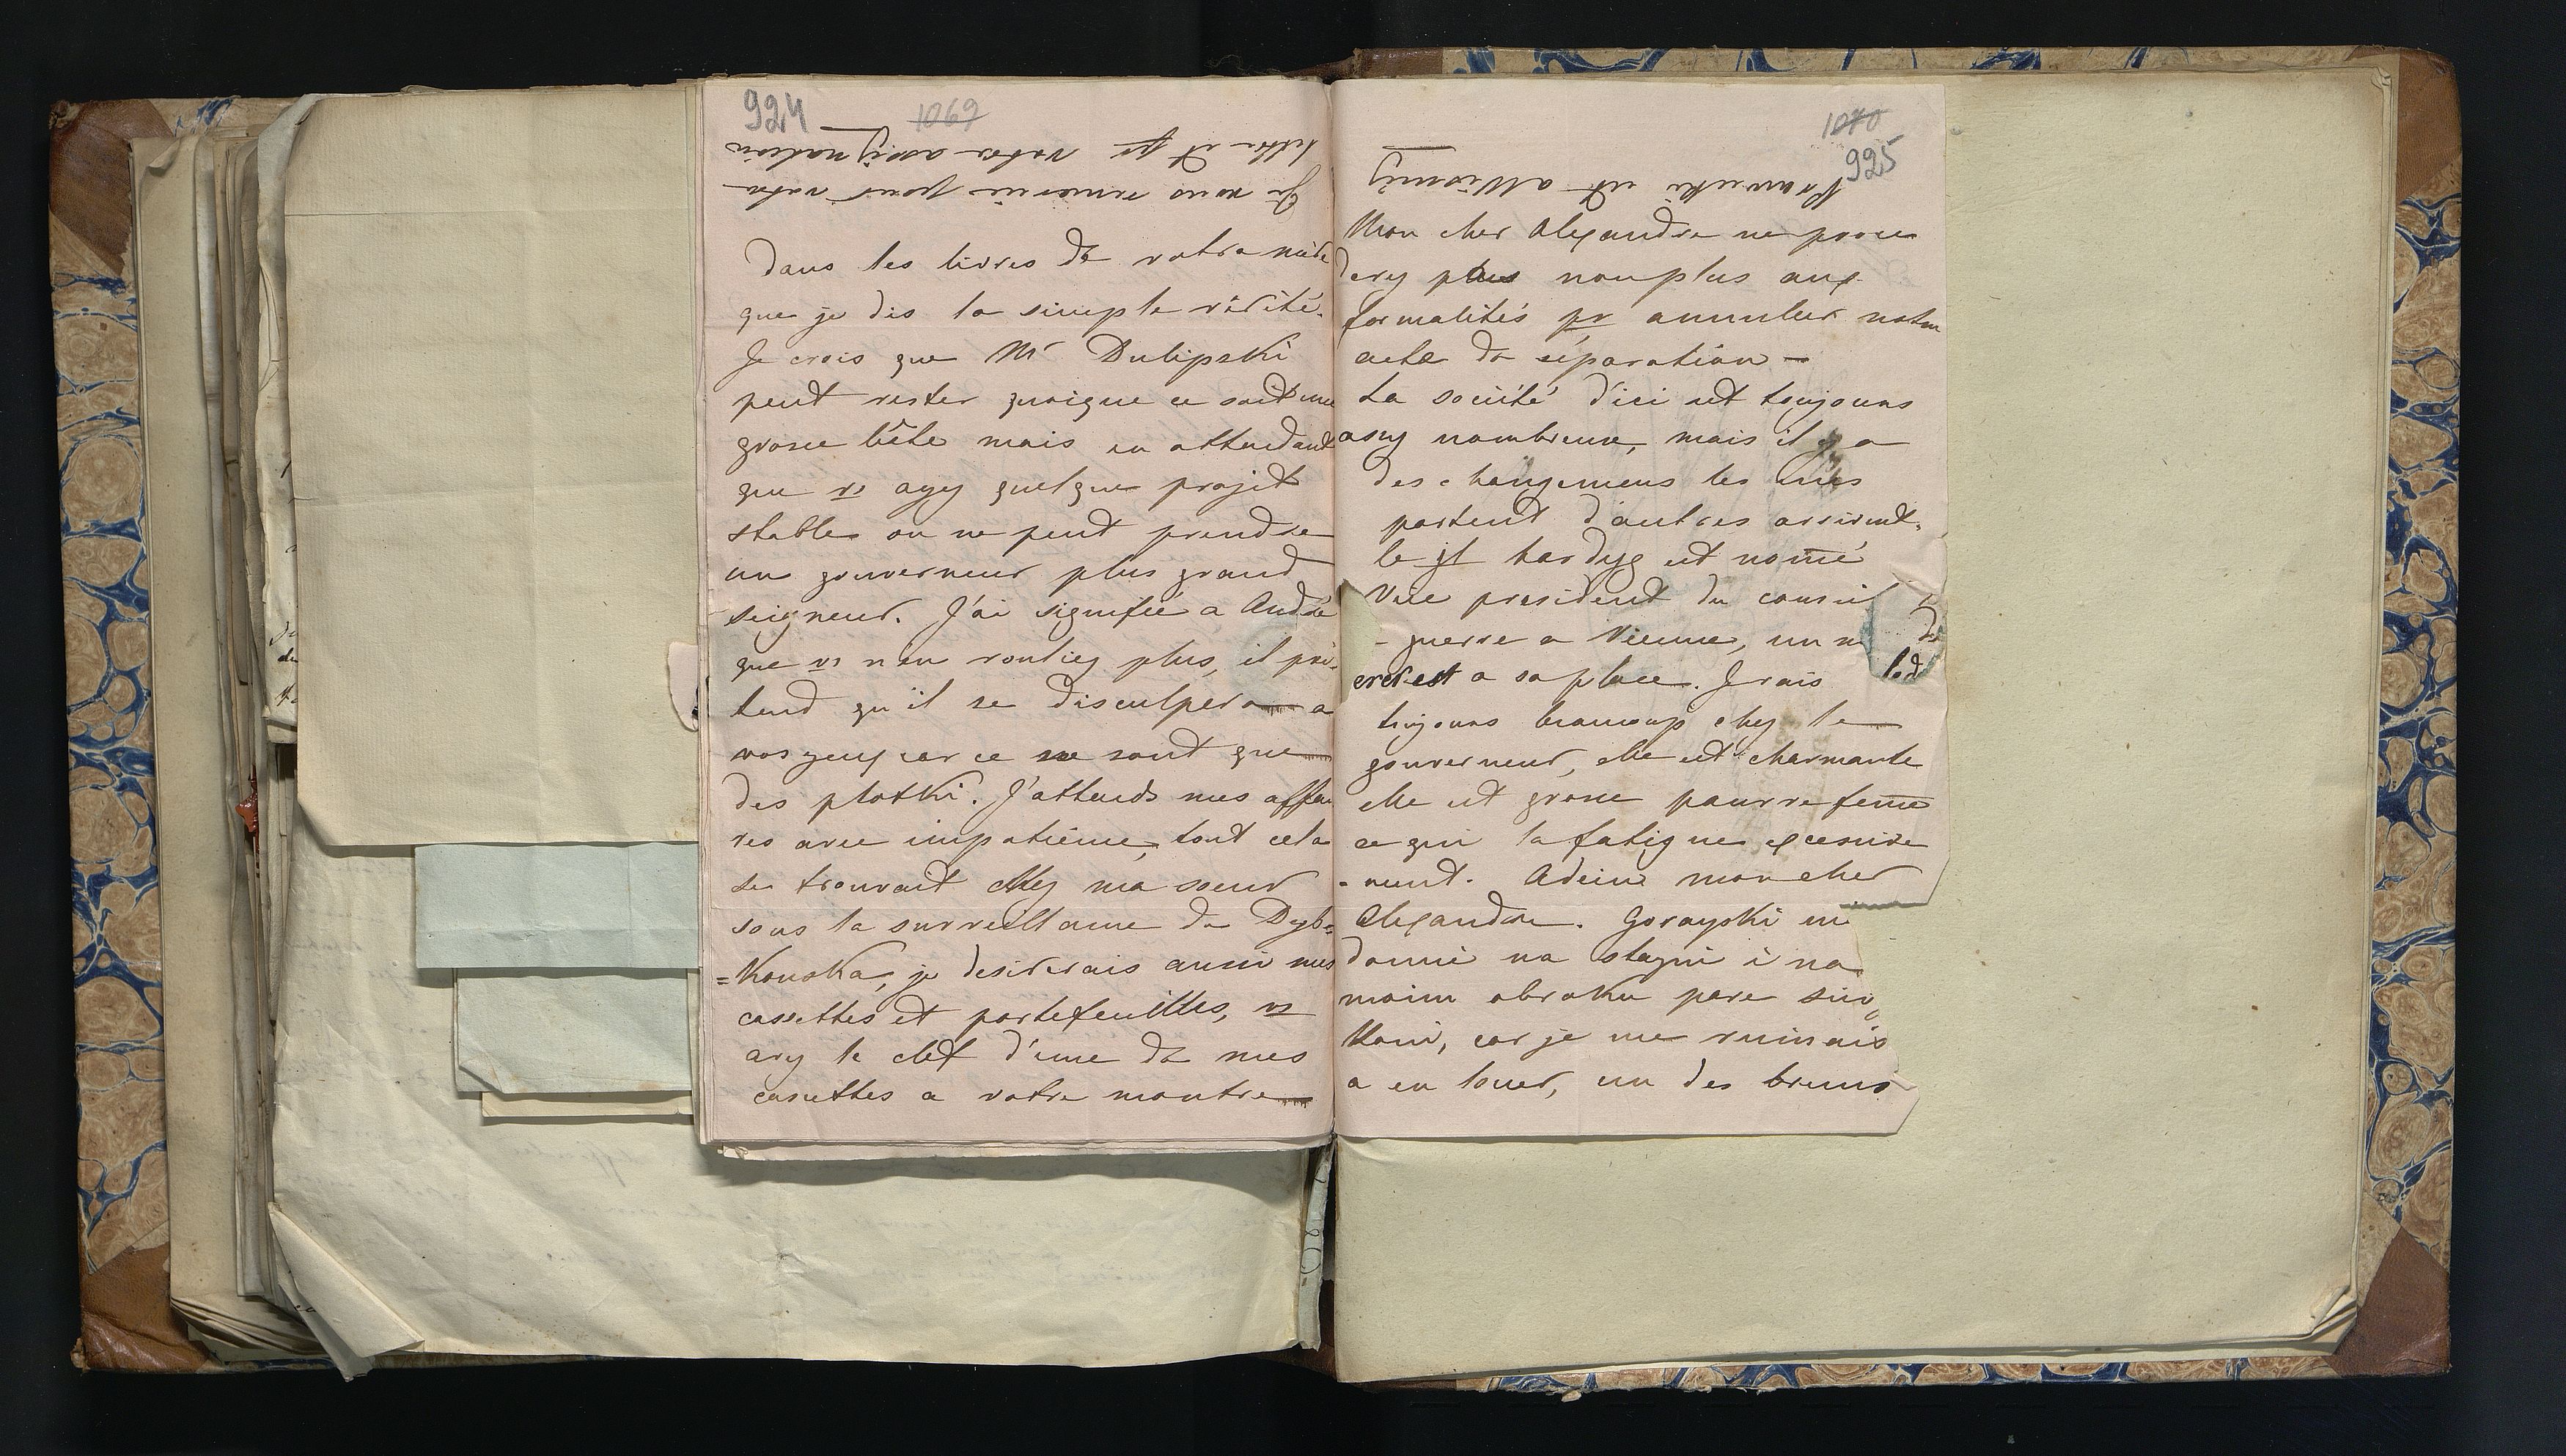 924
1069
Je vous remercie pour votre
lettre et pr votre assignation
Dans les livres de votre mère
que je dis la simple vérité.
Je crois que Mr Dulipski
peut rester quoique ce soit une
grosse bête mais en attendant
que vs ayez quelque projet
stable on ne peut prendre
un gouverneur plus grand
seigneur. J'ai signifié a André
que vs n'en vouliez plus, il pré-
tend qu'il se disculpera a
vos yeux car ce ne sont que
des plotki. J'attends mes affai
res avec impatience, tout cela
se trouvait chez ma soeur
sous la surveillance de Dyb=
=Kouska, je desirerais aussi mes
cassettes et portefeuilles, vs
avez le clef d'une de mes
cassettes a votre montre
1070
925
est
Mon cher Alexandre ne proce
derez pas non plus aux
formalités pr annuler notre
acte de séparation —
La société d'ici est toujours
assez nombreuse, mais il y a
des changemens les unes
partent d'autres arrivent.
le Hardyg est nomé
Vice president du conseil de
- guerre a Vienne, un
est a sa place. Je vais
toujours beaucoup chez le
gouverneur, elle est charmante
elle est grosse pauvre feme
ce qui la fatigue excessive
-ment. Adieu mon cher
Alexandre. Gorayski mi
donné na stayni i na
moim obroku pare
Koni, car je me ruinais
a en louer, un des bruns